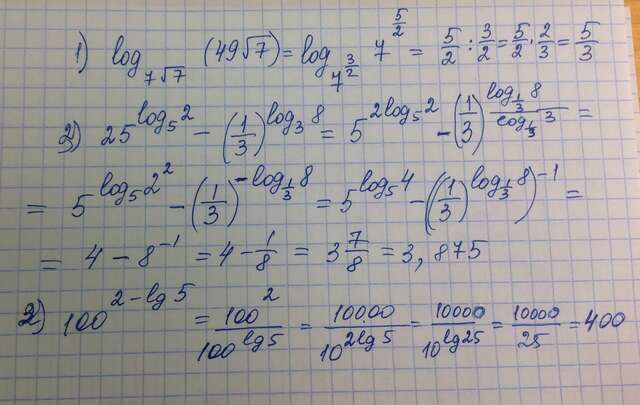 1) log_{7√7} (49√7) = log_{7^{3/2}} 7^{5/2} = 5/2 : 3/2 = 5/2 · 2/3 = 5/3
2) 25^{log_5 2} - (1/3)^{log_3 8} = 5^{2log_5 2} - (1/3)^{log_{1/3} 8 / log_{1/3} 3} =
= 5^{log_5 2^2} - (1/3)^{-log_{1/3} 8} = 5^{log_5 4} - ((1/3)^{log_{1/3} 8})^{-1} =
= 4 - 8^{-1} = 4 - 1/8 = 3 7/8 = 3,875
3) 100^{2-lg 5} = 100^2 / 100^{lg 5} = 10000 / 10^{2lg 5} = 10000 / 10^{lg 25} = 10000 / 25 = 400